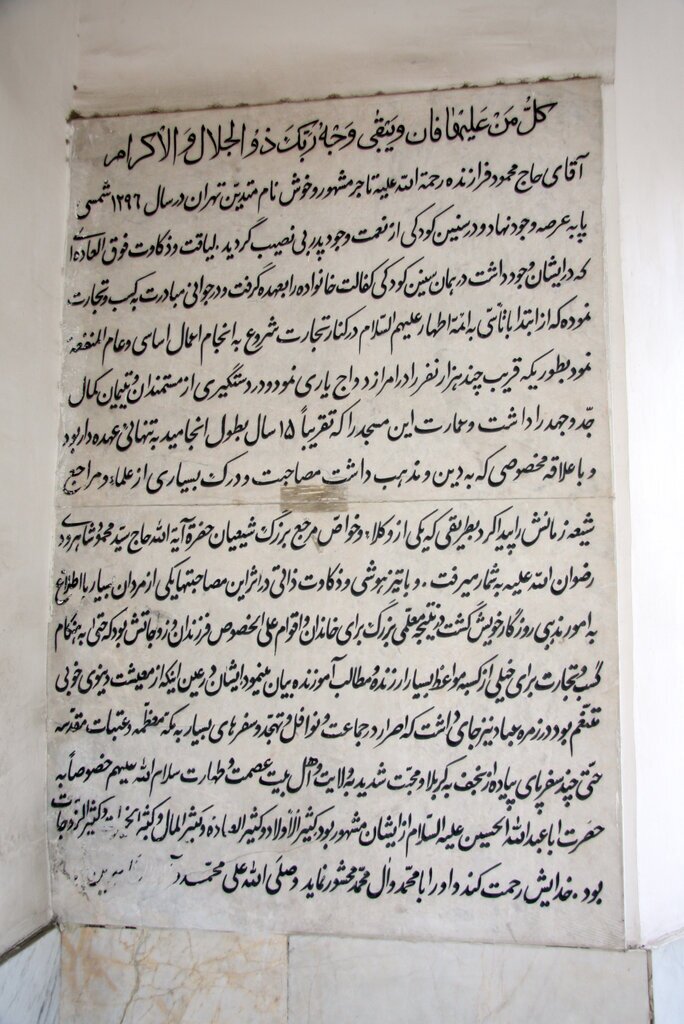 کُلُّ مَنْ عَلَیْهٰا فَان وَیَبْقٰی وَجْهُ رَبِّکَ ذُو الْجَلالِ وَالْاِکْرام
آقای حاج محمود فرازنده رحمة الله علیه تاجر مشهور و خوش نام متدین تهران در سال ۱۲۹۶ شمسی
پا به عرصه وجود نهاد و در سنین کودکی از نعمت وجود پدر بی نصیب گردید . لیاقت و ذکاوت فوق العاده‌ای
که در ایشان وجود داشت در همان سنین کودکی کفالت خانواده را بعهده گرفت و در جوانی مبادرت به کسب و تجارت
نموده که از ابتدا با تأسّی به ائمة اطهار علیهم السلام در کنار تجارت شروع به انجام اعمال اساسی و عام المنفعه
نمود بطوریکه قریب چند هزار نفر را در امر ازدواج یاری نمود و در دستگیری از مستمندان و یتیمان کمال
جدّ و جهد را داشت و عمارت این مسجد را که تقریباً ۱۵ سال بطول انجامید به تنهائی عهده دار بود
و با علاقه مخصوصی که به دین و مذهب داشت مصاحبت و درک بسیاری از علماء و مراجع
شیعه زمانش را پیدا کرد بطریقی که یکی از وکلاء و خواصّ مرجع بزرگ شیعیان حضرة آیة الله حاج سیّد محمود شاهرودی
رضوان الله علیه به شمار میرفت . و با تیزهوشی و ذکاوت ذاتی در اثر این مصاحبتها یکی از مردان بسیار با اطلاع
به امور مذهبی روزگار خویش گشت در نتیجه معلمی بزرگ برای خاندان و اقوام علی الخصوص فرزندان و زوجاتش بود که حتی به هنگام
کسب و تجارت برای خیلی از کسبه مواعظ بسیار ارزنده و مطالب آموزنده بیان مینمود ایشان در عین اینکه از معیشت دنیوی خوبی
متنعّم بود در زمره عباد نیز جای داشت که اصرار در جماعت و نوافل و تهجّد و سفرهای بسیار به مکّه معظّمه و عتبات مقدسه
حتّی چند سفر پای پیاده از نجف به کربلا و محبت شدید به ولایت و اهل بیت عصمت و طهارت سلام الله علیهم خصوصاً به
حضرت اباعبدالله الحسین علیه السلام از ایشان مشهور بود کثیر الأولاد و کثیر العباده و کثیر المال و کثیر و کثیر الزوجات
بود . خدایش رحمت کند و او را با محمّد و آل محمّد محشور نماید وصلّی الله علی محمّد